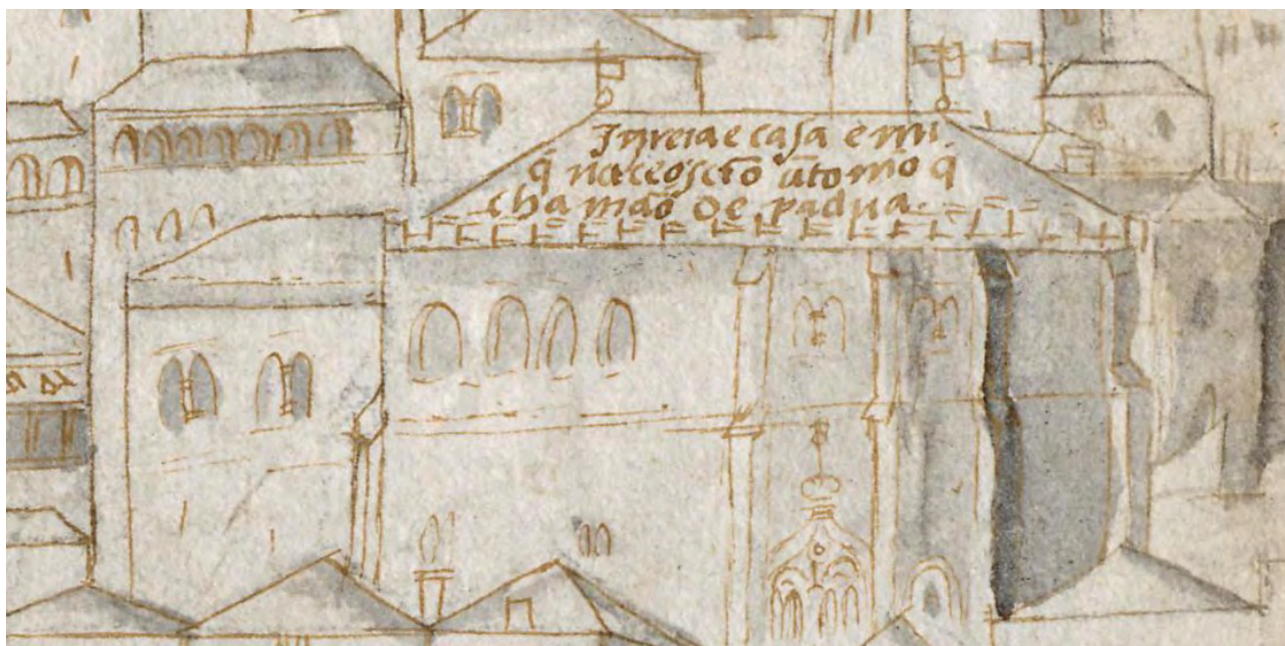 Igreia e casa e mi
q̃ naceo scto ãtonio q̃
chamão de padua.